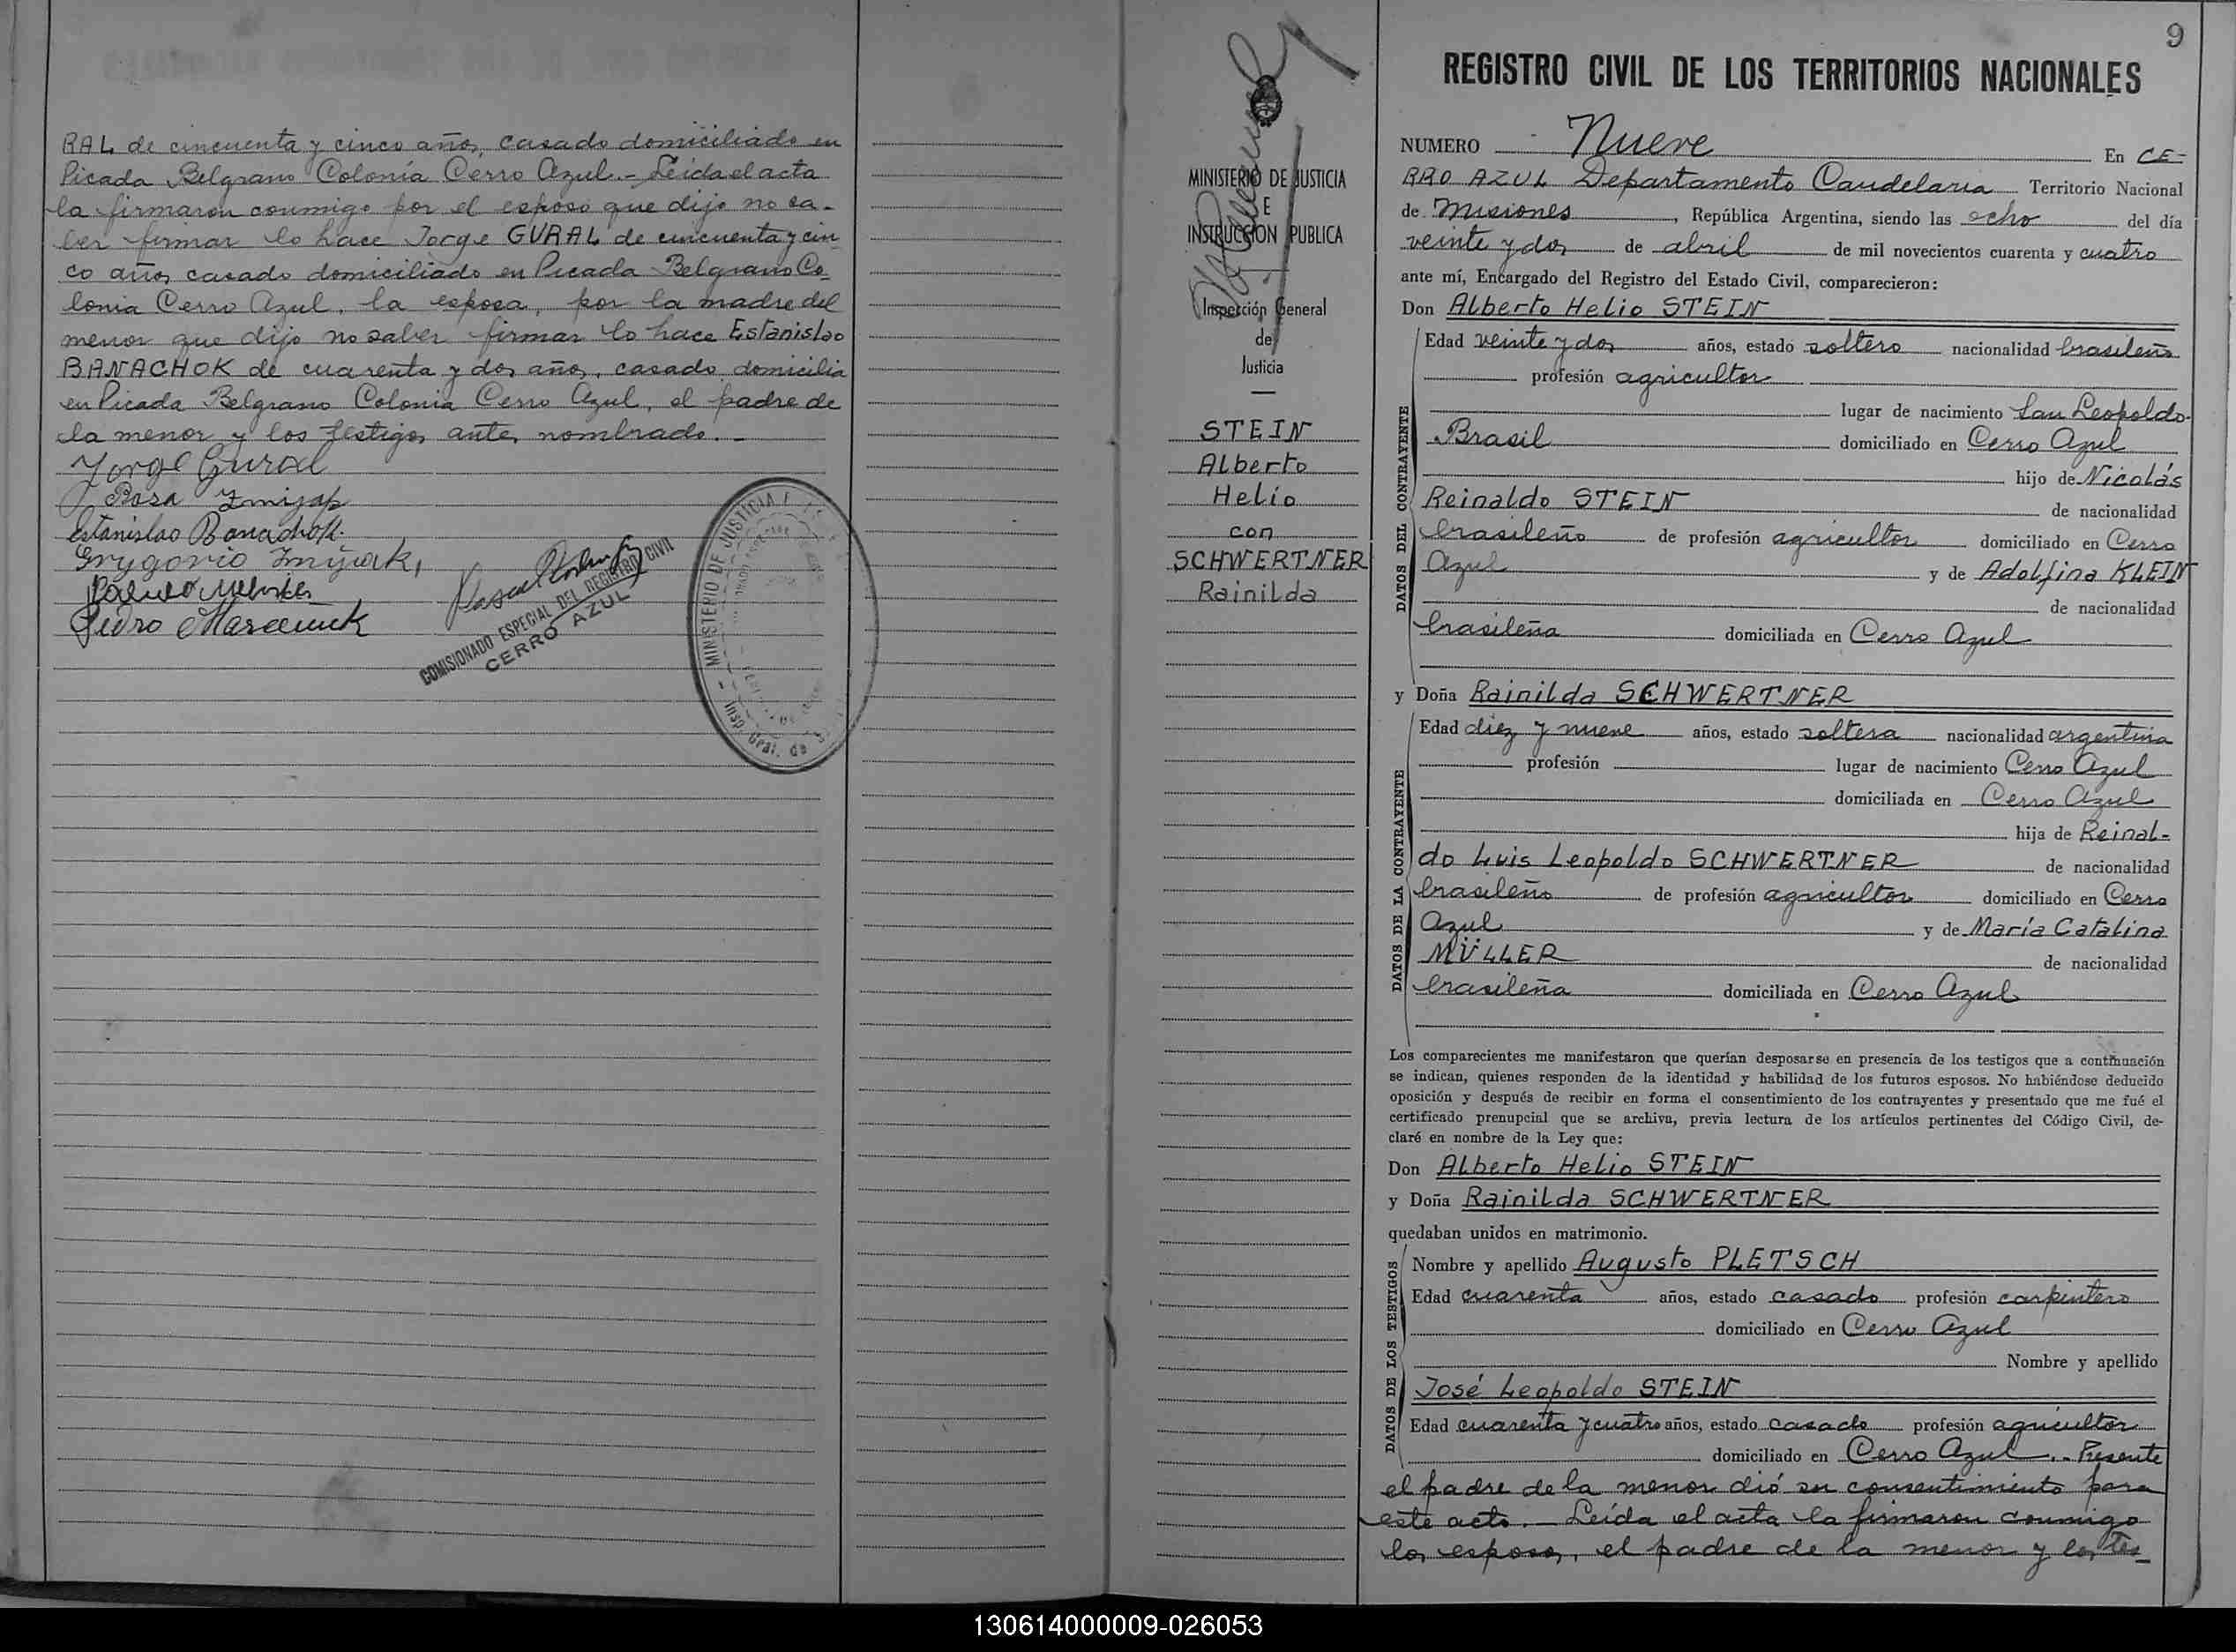 RAL de cincuenta y cinco años, casado domiciliado en
Picada Belgrano Colonia Cerro Azul.- Leída el acta
la firmaron conmigo por el esposo que dijo no sa-
ber firmar lo hace Jorge GURAL de cincuenta y cin
co años casado domiciliado en Picada Belgrano Co
lonia Cerro Azul, la esposa, por la madre del
menor que dijo no saber firmar lo hace Estanislao
BANACHOK de cuarenta y dos años, casado domicilia
en Picada Belgrano Colonia Cerro Azul, el padre de
la menor y los testigos antes nombrado.-
Jorge Gural
Rosa
Estanislao Banachok.
Grygorio
Pedro
COMISIONADO ESPECIAL DEL REGISTRO CIVIL
CERRO AZUL
MINISTERIO DE JUSTICIA E
Insp. Gral. de
9
MINISTERIO DE JUSTICIA
E
INSTRUCCION PUBLICA
Inspección General
de
Justicia
STEIN
Alberto
Helio
con
SCHWERTNER
Rainilda
REGISTRO CIVIL DE LOS TERRITORIOS NACIONALES
NUMERO Nueve En CE-
RRO AZUL Departamento Candelaria Territorio Nacional
de Misiones, República Argentina, siendo las ocho del día
veinte y dos de abril de mil novecientos cuarenta y cuatro
ante mí, Encargado del Registro del Estado Civil, comparecieron:
Don Alberto Helio STEIN
DATOS DEL CONTRAYENTE
Edad veinte y dos años, estado soltero nacionalidad brasileño
profesión agricultor
lugar de nacimiento San Leopoldo-
Brasil domiciliado en Cerro Azul
hijo de Nicolás
Reinaldo STEIN de nacionalidad
brasileño de profesión agricultor domiciliado en Cerro
Azul y de Adolfina KLEIN
de nacionalidad
brasileña domiciliada en Cerro Azul
y Doña Rainilda SCHWERTNER
DATOS DE LA CONTRAYENTE
Edad diez y nueve años, estado soltera nacionalidad argentina
profesión lugar de nacimiento Cerro Azul
domiciliada en Cerro Azul
hija de Reinal-
do Luis Leopoldo SCHWERTNER de nacionalidad
brasileño de profesión agricultor domiciliado en Cerro
Azul y de María Catalina
MÜLLER de nacionalidad
brasileña domiciliada en Cerro Azul
Los comparecientes me manifestaron que querían desposarse en presencia de los testigos que a continuación
se indican, quienes responden de la identidad y habilidad de los futuros esposos. No habiéndose deducido
oposición y después de recibir en forma el consentimiento de los contrayentes y presentado que me fué el
certificado prenupcial que se archiva, previa lectura de los artículos pertinentes del Código Civil, de-
claré en nombre de la Ley que:
Don Alberto Helio STEIN
y Doña Rainilda SCHWERTNER
quedaban unidos en matrimonio.
DATOS DE LOS TESTIGOS
Nombre y apellido Augusto PLETSCH
Edad cuarenta años, estado casado profesión carpintero
domiciliado en Cerro Azul
Nombre y apellido
José Leopoldo STEIN
Edad cuarenta y cuatro años, estado casado profesión agricultor
domiciliado en Cerro Azul.- Presente
el padre de la menor dió su consentimiento para
este acto.- Leída el acta la firmaron conmigo
los esposos, el padre de la menor y los tes-
130614000009-026053